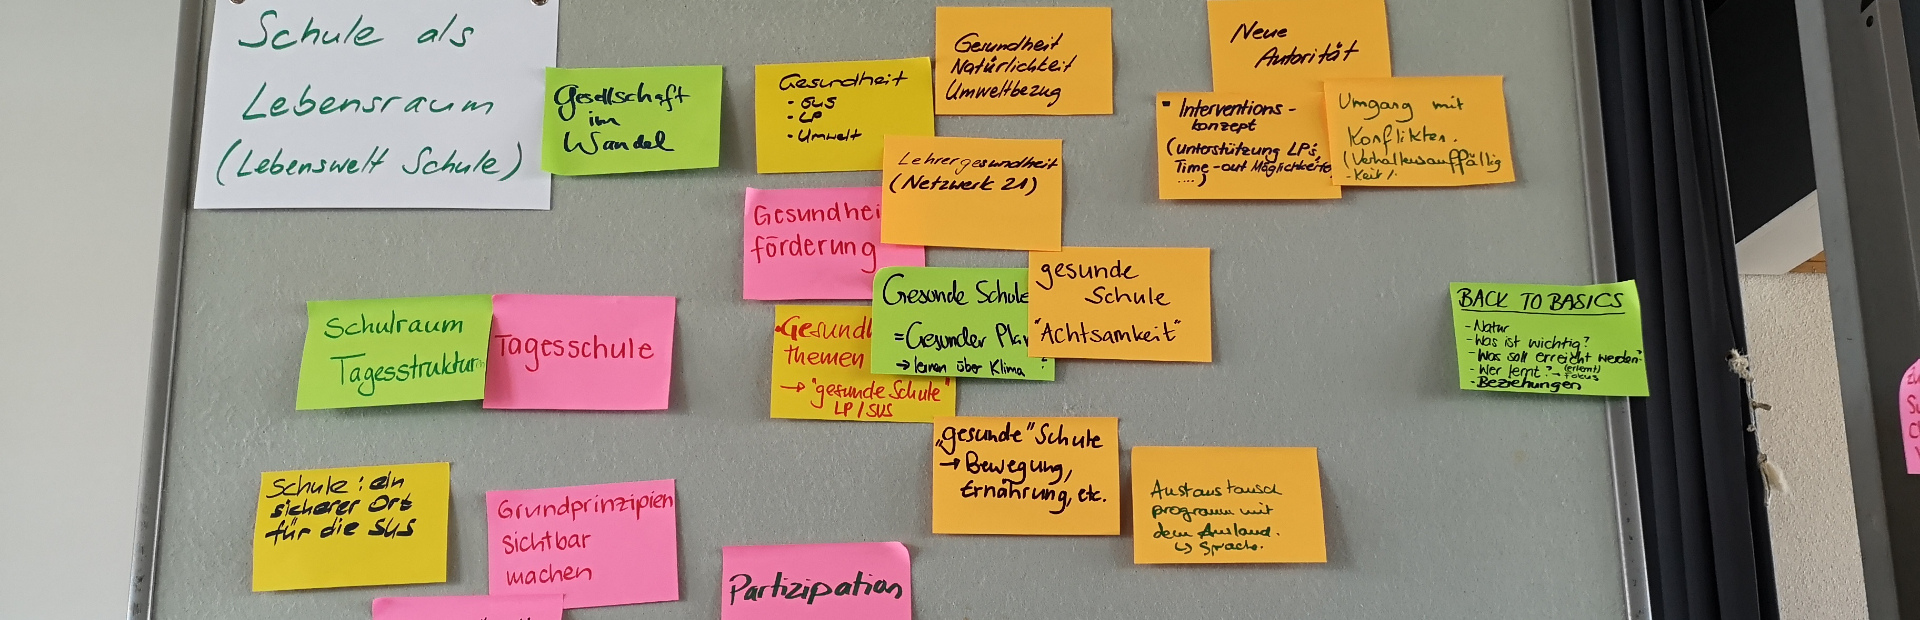 Schule als
Lebensraum
(Lebenswelt Schule)
Gesellschaft
im
Wandel
Gesundheit
- SUS
- LP
- Umwelt
Gesundheit
Natürlichkeit
Umweltbezug
Neue
Autorität
- Interventions-
konzept
(unterstützung LP's,
Time-out Möglichkeite
....)
Umgang mit
Konflikten.
(Verhaltensauffällig
-keit).
Lehrergesundheit
(Netzwerk 21)
Gesundhei
förderung
Gesunde Schule
= Gesunder Plan
→ lernen über Klima
gesunde
Schule
"Achtsamkeit"
Gesundh
themen
→ "gesunde Schule"
LP/SUS
BACK TO BASICS
- Natur
- Was ist wichtig?
- Was soll erreicht werden?
- Wer lernt? → (erlernt) Fokus
- Beziehungen
Schulraum
Tagesstruktur
Tagesschule
„gesunde" Schule
→ Bewegung,
Ernährung, etc.
Austaustausch
programm mit
dem Ausland.
↳ Sprache.
Schule: ein
sicherer Ort
für die SUS
Grundprinzipien
sichtbar
machen
Partizipation